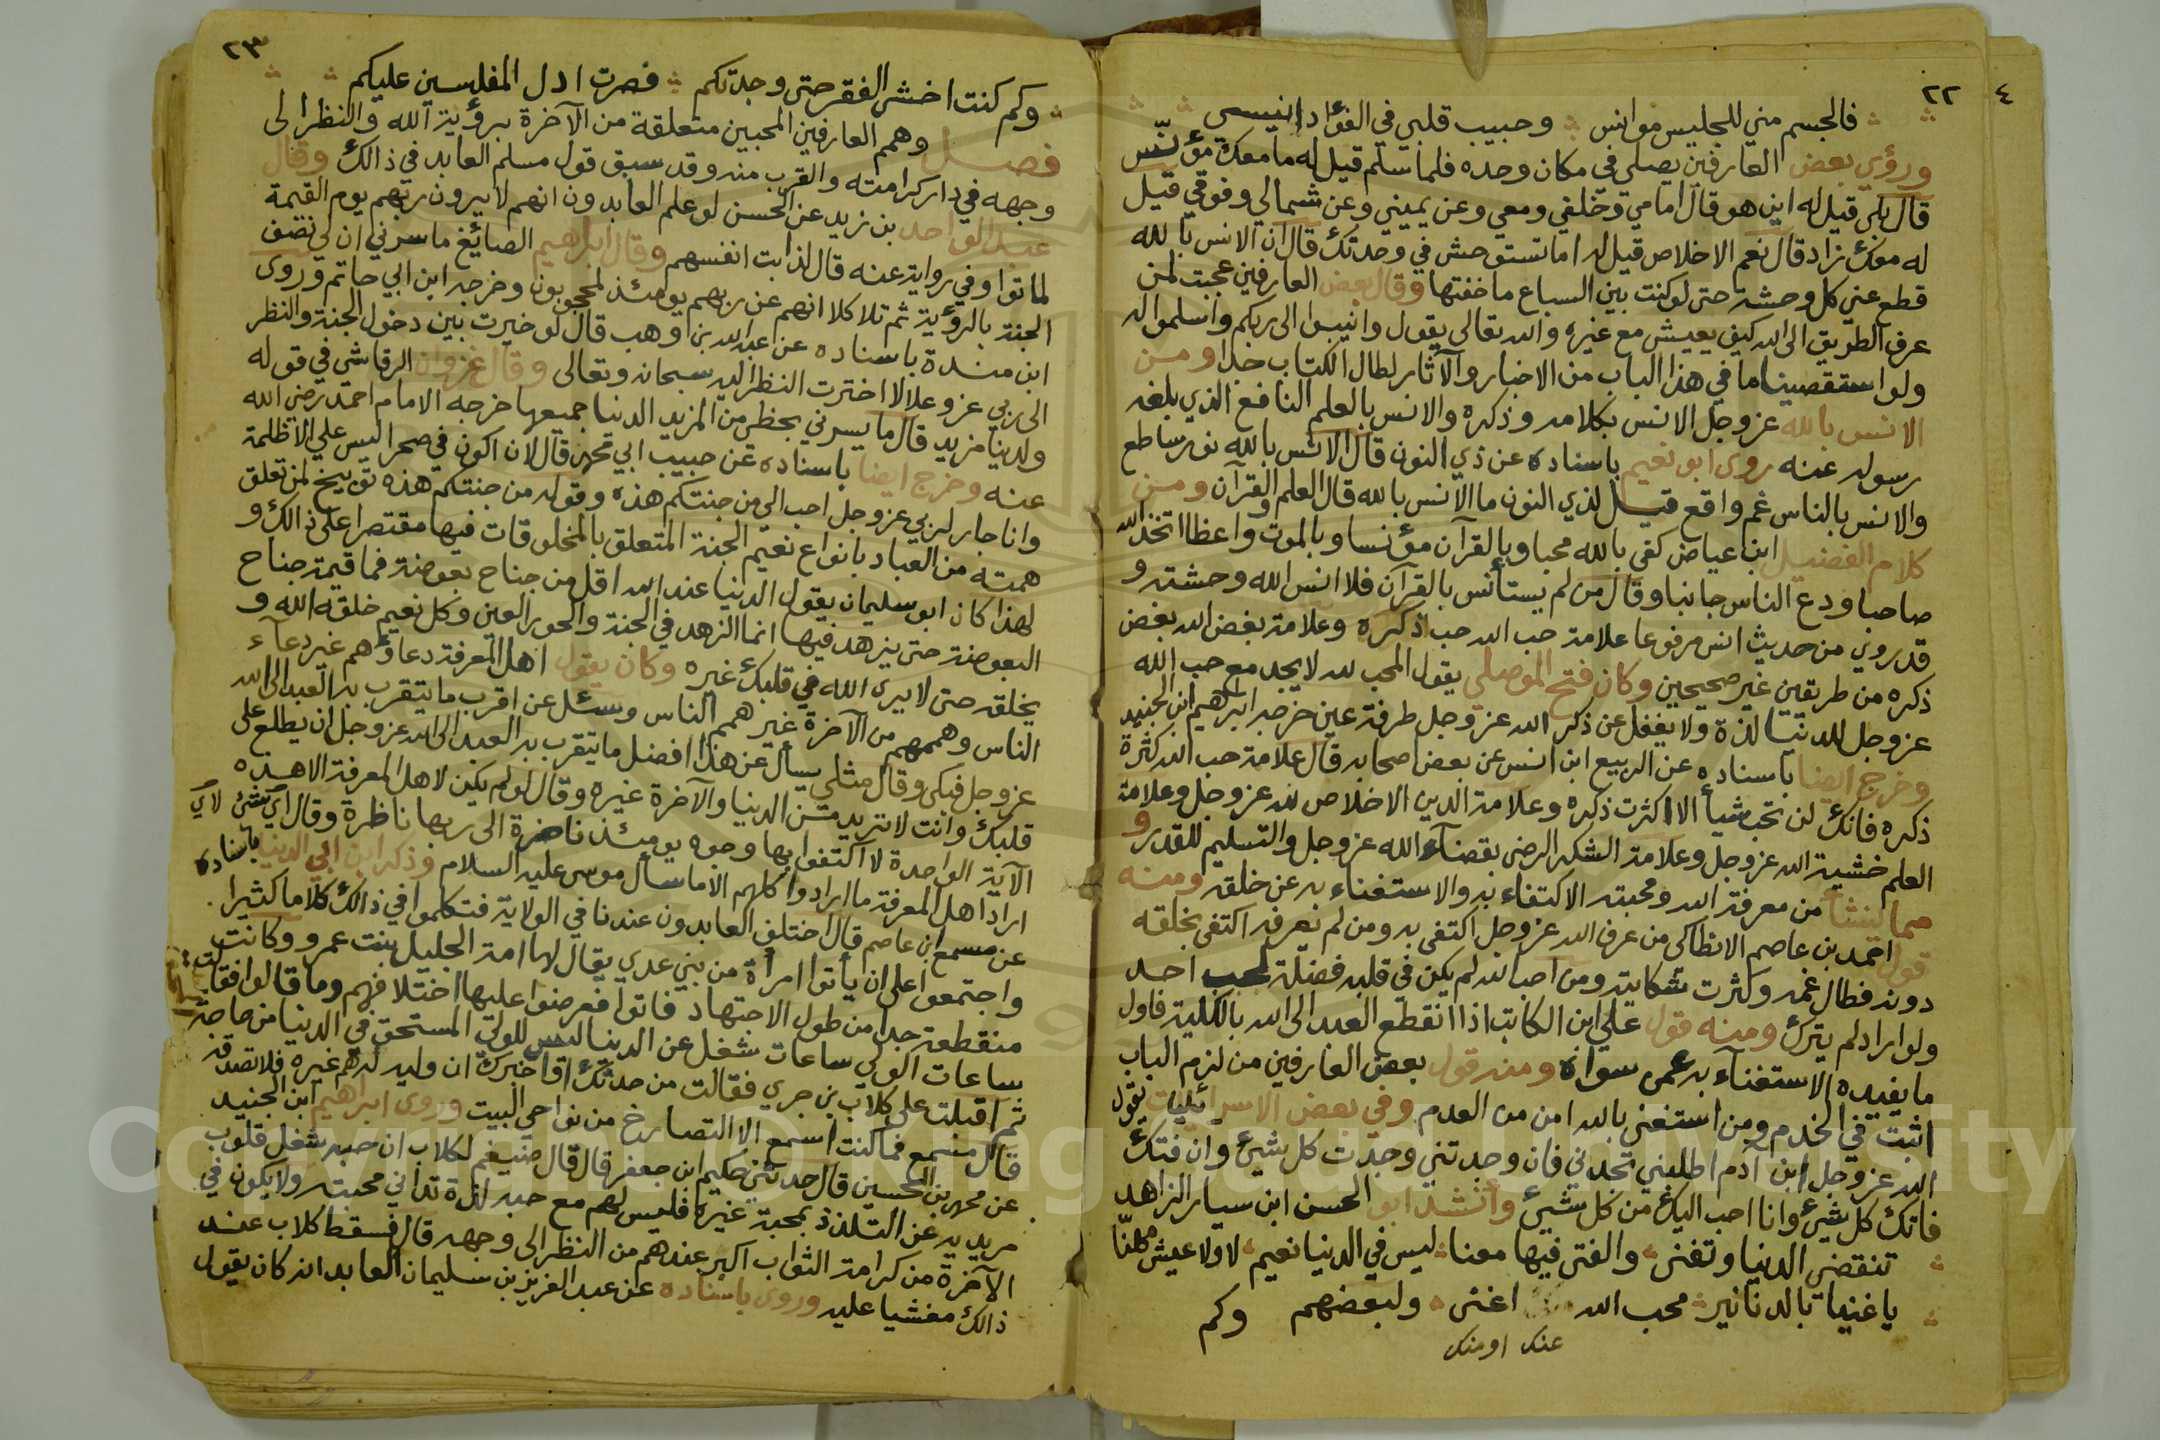 ٤
٢٢
فالجسم مني للجليس موانس وحبيب قلبي في الفؤاد انيسي
ورؤي بعض العارفين يصلي في مكان وحده فلما سلم قيل له ما معك مؤنّس
قال بلى قيل له اين هو قال امامي وخلفي ومعي وعن يميني وعن شمالي وفوقي قيل
له معك زاد قال نعم الاخلاص قيل له اما تستوحش في وحدتك قال ان الانس بالله
قطع عني كل وحشة حتى لو كنت بين السباع ما خفتها وقال بعض العارفين عجبت لمن
عرف الطريق الى الله كيف يعيش مع غيره والله تعالى يقول وانيبوا الى ربكم واسلموا له
ولو استقصينا ما في هذا الباب من الاخبار والآثار لطال الكتاب جدا ومن
الانس بالله عز وجل الانس بكلامه وذكره والانس بالعلم النافع الذي بلغه
رسوله عنه روى ابو نعيم باسناده عن ذي النون قال الانس بالله نور ساطع
والانس بالناس غم واقع قيل لذي النون ما الانس بالله قال العلم والقرآن ومن
كلام الفضيل ابن عياض كفى بالله محبا وبالقرآن مؤنسا وبالموت واعظا اتخذ الله
صاحبا ودع الناس جانبا وقال من لم يستأنس بالقرآن فلا انس الله وحشته و
قد روي من حديث انس مرفوعا علامة حب الله حب ذكره وعلامة بغض الله بغض
ذكره من طريقين غير صحيحين وكان فتح الموصلي يقول المحب لله لا يجد مع حب الله
عز وجل للدنيا لذة ولا يغفل عن ذكر الله عز وجل طرفة عين خرجه ابراهيم ابن الجنيد
وخرج ايضا باسناده عن الربيع ابن انس عن بعض اصحابه قال علامة حب الله كثرة
ذكره فانك لن تحب شيأ الا اكثرت ذكره وعلامة الدين الاخلاص لله عز وجل وعلامة
العلم خشية الله عز وجل وعلامة الشكر الرضى بقضاء الله عز وجل والتسليم للقدر و
مما ينشأ من معرفة الله ومحبته الاكتفاء به والاستغناء به عن خلقه ومنه
قول احمد بن عاصم الانطاكي من عرف الله عز وجل اكتفى به ومن لم يعرفه اكتفى بخلقه
دونه فطال غمه وكثرت شكايته ومن احب الله لم يكن في قلبه فضلة لحب احد
ولو اراد لم يترك ومنه قول علي ابن الكاتب اذا انقطع العبد الى الله بالكلية فاول
ما يفيده الاستغناء به عمن سواه ومنه قول بعض العارفين من لزم الباب
اثبت في الخدم ومن استغنى بالله امن من العدم وفي بعض الاسرائيليات يقول
الله عز وجل ابن آدم اطلبني تجدني فان وجدتني وجدت كل شيئ وان فتك
فاتك كل شيئ وانا احب اليك من كل شيئ وانشد ابو الحسن ابن سيار الزاهد
تنقضي الدنيا وتفنى والفتى فيها معنا ليس في الدنيا نعيم لا ولا عيش مهنّا
يا غنيا بالدنانير محب الله اغنى ولبعضهم وكم
عنك او منك
٢٣
وكم كنت اخشى الفقر حتى وجدتكم فصرت ادل المفلسين عليكم
فصل وهمم العارفين المحبين متعلقة من الآخرة برؤية الله والنظر الى
وجهه في دار كرامته والقرب منه وقد سبق قول مسلم العابد في ذالك وقال
عبد الواحد بن زيد عن الحسن لو علم العابدون انهم لا يرون ربهم يوم القيمة
لماتوا وفي رواية عنه قال لذابت انفسهم وقال ابراهيم الصايغ ما سرني ان لي نصف
الجنة بالرؤية ثم تلا كلا انهم عن ربهم يومئذ لمحجوبون وخرجه ابن ابي حاتم وروى
ابن مندة باسناده عن عبد الله بن وهب قال لو خيرت بين دخول الجنة والنظر
الى ربي عز وعلا لا اخترت النظر اليه سبحانه وتعالى وقال غزوان الرقاشي في قوله
ولدينا مزيد قال ما يسرني بحظي من المزيد الدنيا جميعها خرجه الامام احمد رضي الله
عنه وخرج ايضا باسناده عن حبيب ابي محمد قال لان اكون في صحرا ليس علي الا ظلمة
وانا جار لربي عز وجل احب الي من جنتكم هذه وقوله من جنتكم هذه توبيخ لمن تعلق
همته من العباد بانواع نعيم الجنة المتعلق بالمخلوقات فيها مقتصرا على ذالك و
لهذا كان ابو سليمان يقول الدنيا عند الله اقل من جناح بعوضة فما قيمة جناح
البعوضة حتى يزهد فيها انما الزهد في الجنة والحور العين وكل نعيم خلقه الله و
يخلقه حتى لا يرى الله في قلبك غيره وكان يقول اهل المعرفة دعاؤهم غير دعاء
الناس وهممهم من الآخرة غير همم الناس وسئل عن اقرب ما يتقرب به العبد الى الله
عز وجل فبكى وقال مثلي يسأل عن هذا افضل ما يتقرب به العبد الى الله عز وجل ان يطلع على
قلبك وانت لا تريد من الدنيا والآخرة غيره وقال لو لم يكن لاهل المعرفة الا هذه
الآية الواحدة لاكتفوا بها وجوه يومئذ ناضرة الى ربها ناظرة وقال اي شئ لاي
اراد اهل المعرفة ما ارادوا كلهم الا ما سأل موسى عليه السلام وذكر ابن ابي الدنيا باسناده
عن مسمع ابن عاصم قال اختلف العابدون عندنا في الولاية فتكلموا في ذالك كلاما كثيرا
واجتمعوا على ان يأتوا امرأة من بني عدي يقال لها امة الجليل بنت عمرو وكانت
منقطعة جدا من طول الاجتهاد فاتوا فعرضوا عليها اختلافهم وما قالوا فقالت
ساعات الولي ساعات شغل عن الدنيا ليس للولي المستحق في الدنيا من حاجة
ثم اقبلت على كلاب بن جري فقالت من حدثك او اخبرك ان وليه له هم غيره فلا تصدقه
قال مسمع فما كنت اسمع الا التصارخ من نواحي البيت وروى ابراهيم ابن الجنيد
عن محمد بن الحسين قال حدثني حكيم ابن جعفر قال قال ضيغم لكلاب ان حبه شغل قلوب
مريديه عن التلذذ بمحبة غيره فليس لهم مع حبه لذة تداني محبته ولا يكون في
الآخرة من كرامة الثواب اكبر عندهم من النظر الى وجهه قال فسقط كلاب عند
ذالك مغشيا عليه وروى باسناده عن عبد العزيز بن سليمان العابد انه كان يقول